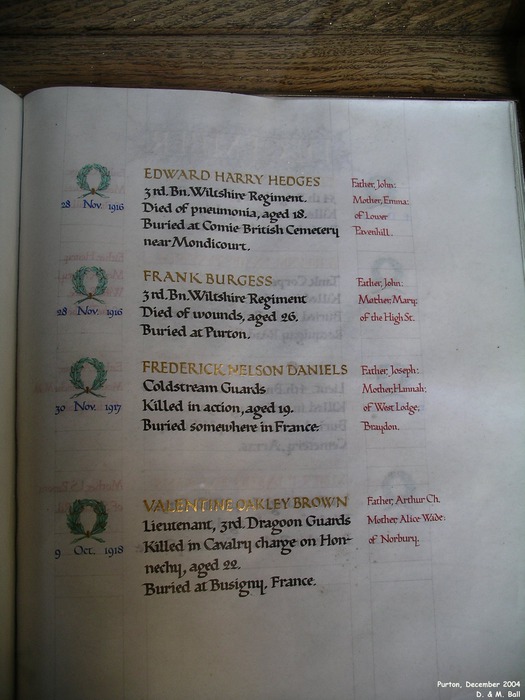 EDWARD HARRY HEDGES
3 rd. Bn. Wiltshire Regiment.
Died of pneumonia, aged 18.
Buried at Comie British Cemetery
near Mondicourt.
28 Nov. 1916
Father, John:
Mother, Emma:
of Lower
Pavenhill.
FRANK BURGESS
3 rd. Bn. Wiltshire Regiment
Died of wounds, aged 26.
Buried at Purton.
28 Nov. 1916
Father, John:
Mother, Mary:
of the High St.
FREDERICK NELSON DANIELS
Coldstream Guards
Killed in action, aged 19.
Buried somewhere in France.
30 Nov. 1917
Father, Joseph:
Mother, Hannah:
of West Lodge,
Braydon.
VALENTINE OAKLEY BROWN
Lieutenant, 3rd. Dragoon Guards
Killed in Cavalry charge on Hon-
nechy, aged 22.
Buried at Busigny, France.
9 Oct. 1918
Father, Arthur Ch.
Mother Alice Wade:
of Norbury.
Purton, December 2004
D. & M. Ball